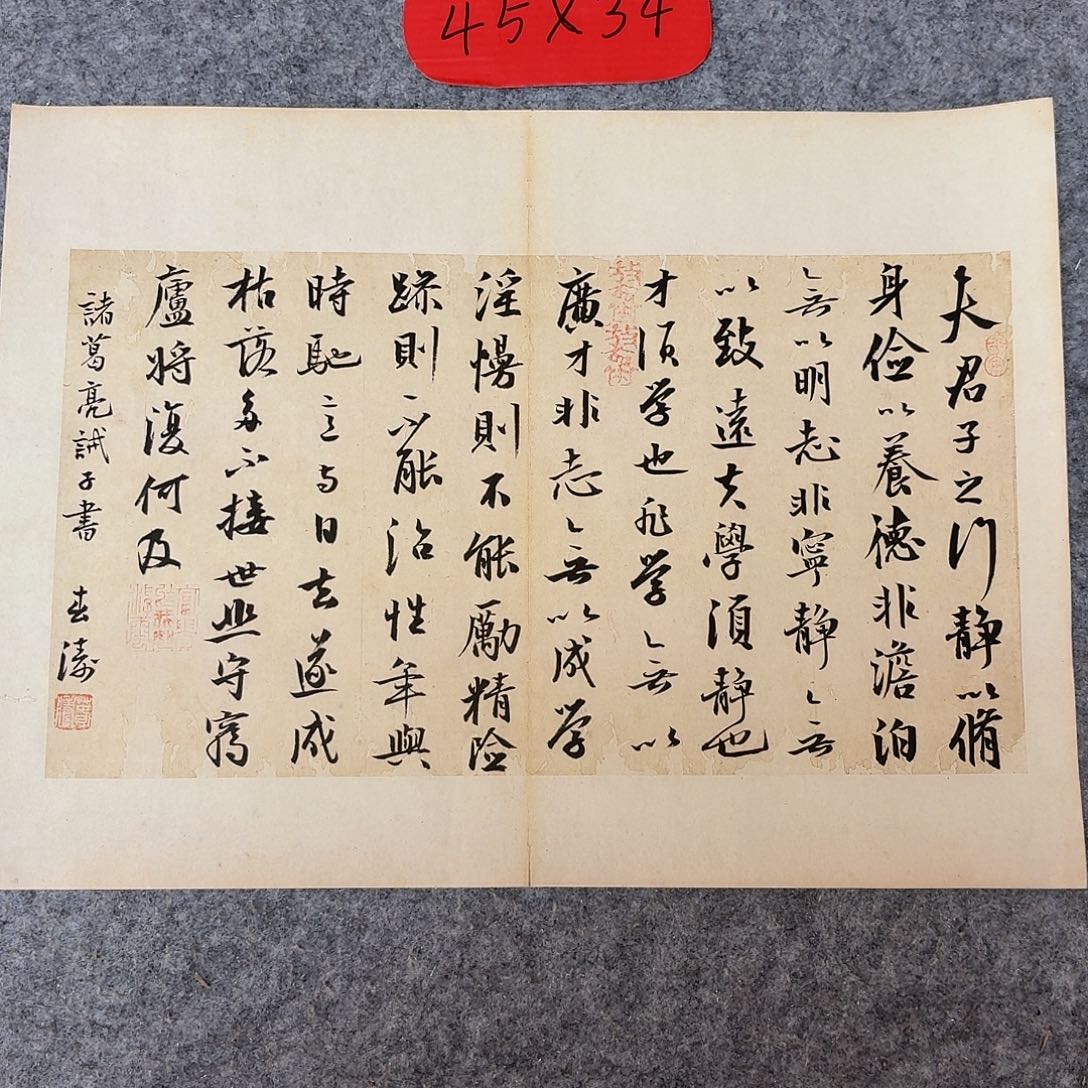 45X34
夫君子之行静以脩
身俭以養德非澹泊
無以明志非寧静無
以致遠夫學須静也
才須学也非学無以
廣才非志無以成学
淫慢則不能勵精险
躁則不能治性年與
時馳意与日去遂成
枯落多不接世悲守窮
廬將復何及
諸葛亮誡子書